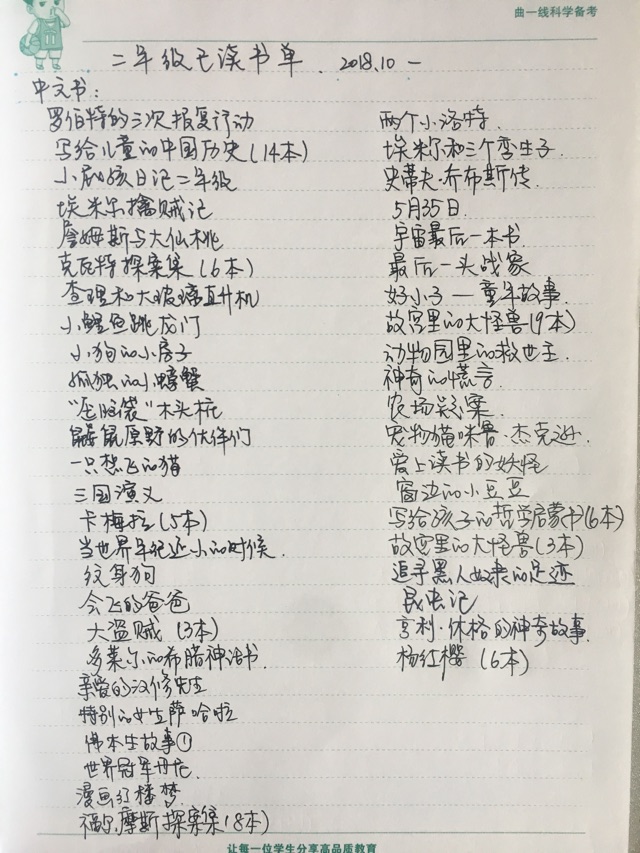 曲一线科学备考
二年级已读书单、2018.10 —
中文书：
罗伯特的三次报复行动
写给儿童的中国历史（14本）
小屁孩日记二年级
埃米尔擒贼记
詹姆斯与大仙桃
克瓦特探案集（6本）
查理和大玻璃升降机
小鲤鱼跳龙门
小狗的小房子
孤独的小螃蟹
“压脚袋”木头桩
鼹鼠原野的伙伴们
一只想飞的猫
三国演义
卡梅拉（5本）
当世界年纪还小的时候.
纹身狗
会飞的爸爸
大盗贼（3本）
多莱尔的希腊神话书.
亲爱的汉修先生
特别的女生萨哈拉
佛本生故事①
世界冠军丹尼.
漫画红楼梦.
福尔摩斯探案集（8本）
两个小洛特.
埃米尔和三个孪生子.
史蒂夫·乔布斯传.
5月35日.
宇宙最后一本书.
最后一头战象
好小子 — 童年故事.
故宫里的大怪兽（9本）
动物园里的救世主.
神奇的谎言.
农场疑案.
宠物猫咪鲁·杰克逊.
爱上读书的妖怪
窗边的小豆豆
写给孩子的哲学启蒙书（6本）
故宫里的大怪兽（3本）
追寻黑人奴隶的足迹
昆虫记
亨利·休格的神奇故事.
杨红樱（6本）
让每一位学生分享高品质教育